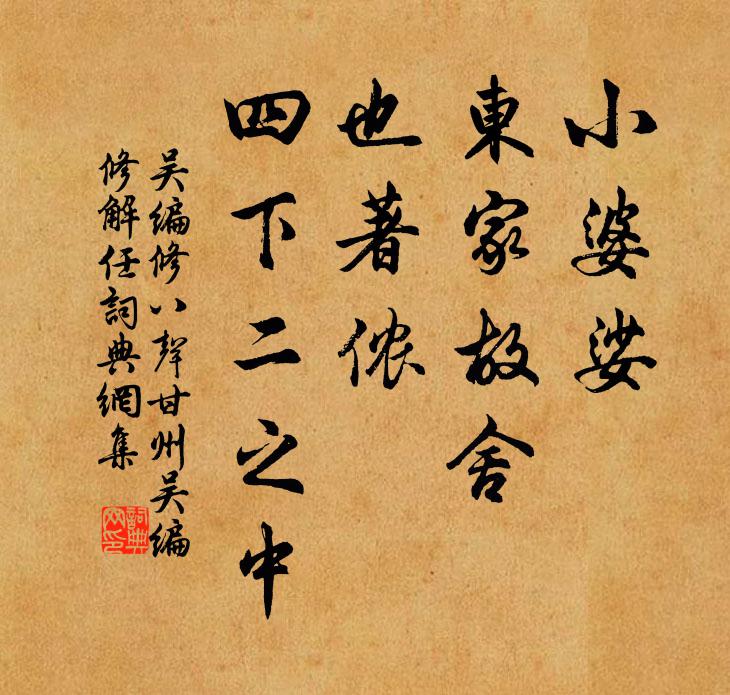 小婆娑
東家故舍
也著侬
四下二之中
吴編修八聲甘州吴編
修解任詞典網集
詞典網印